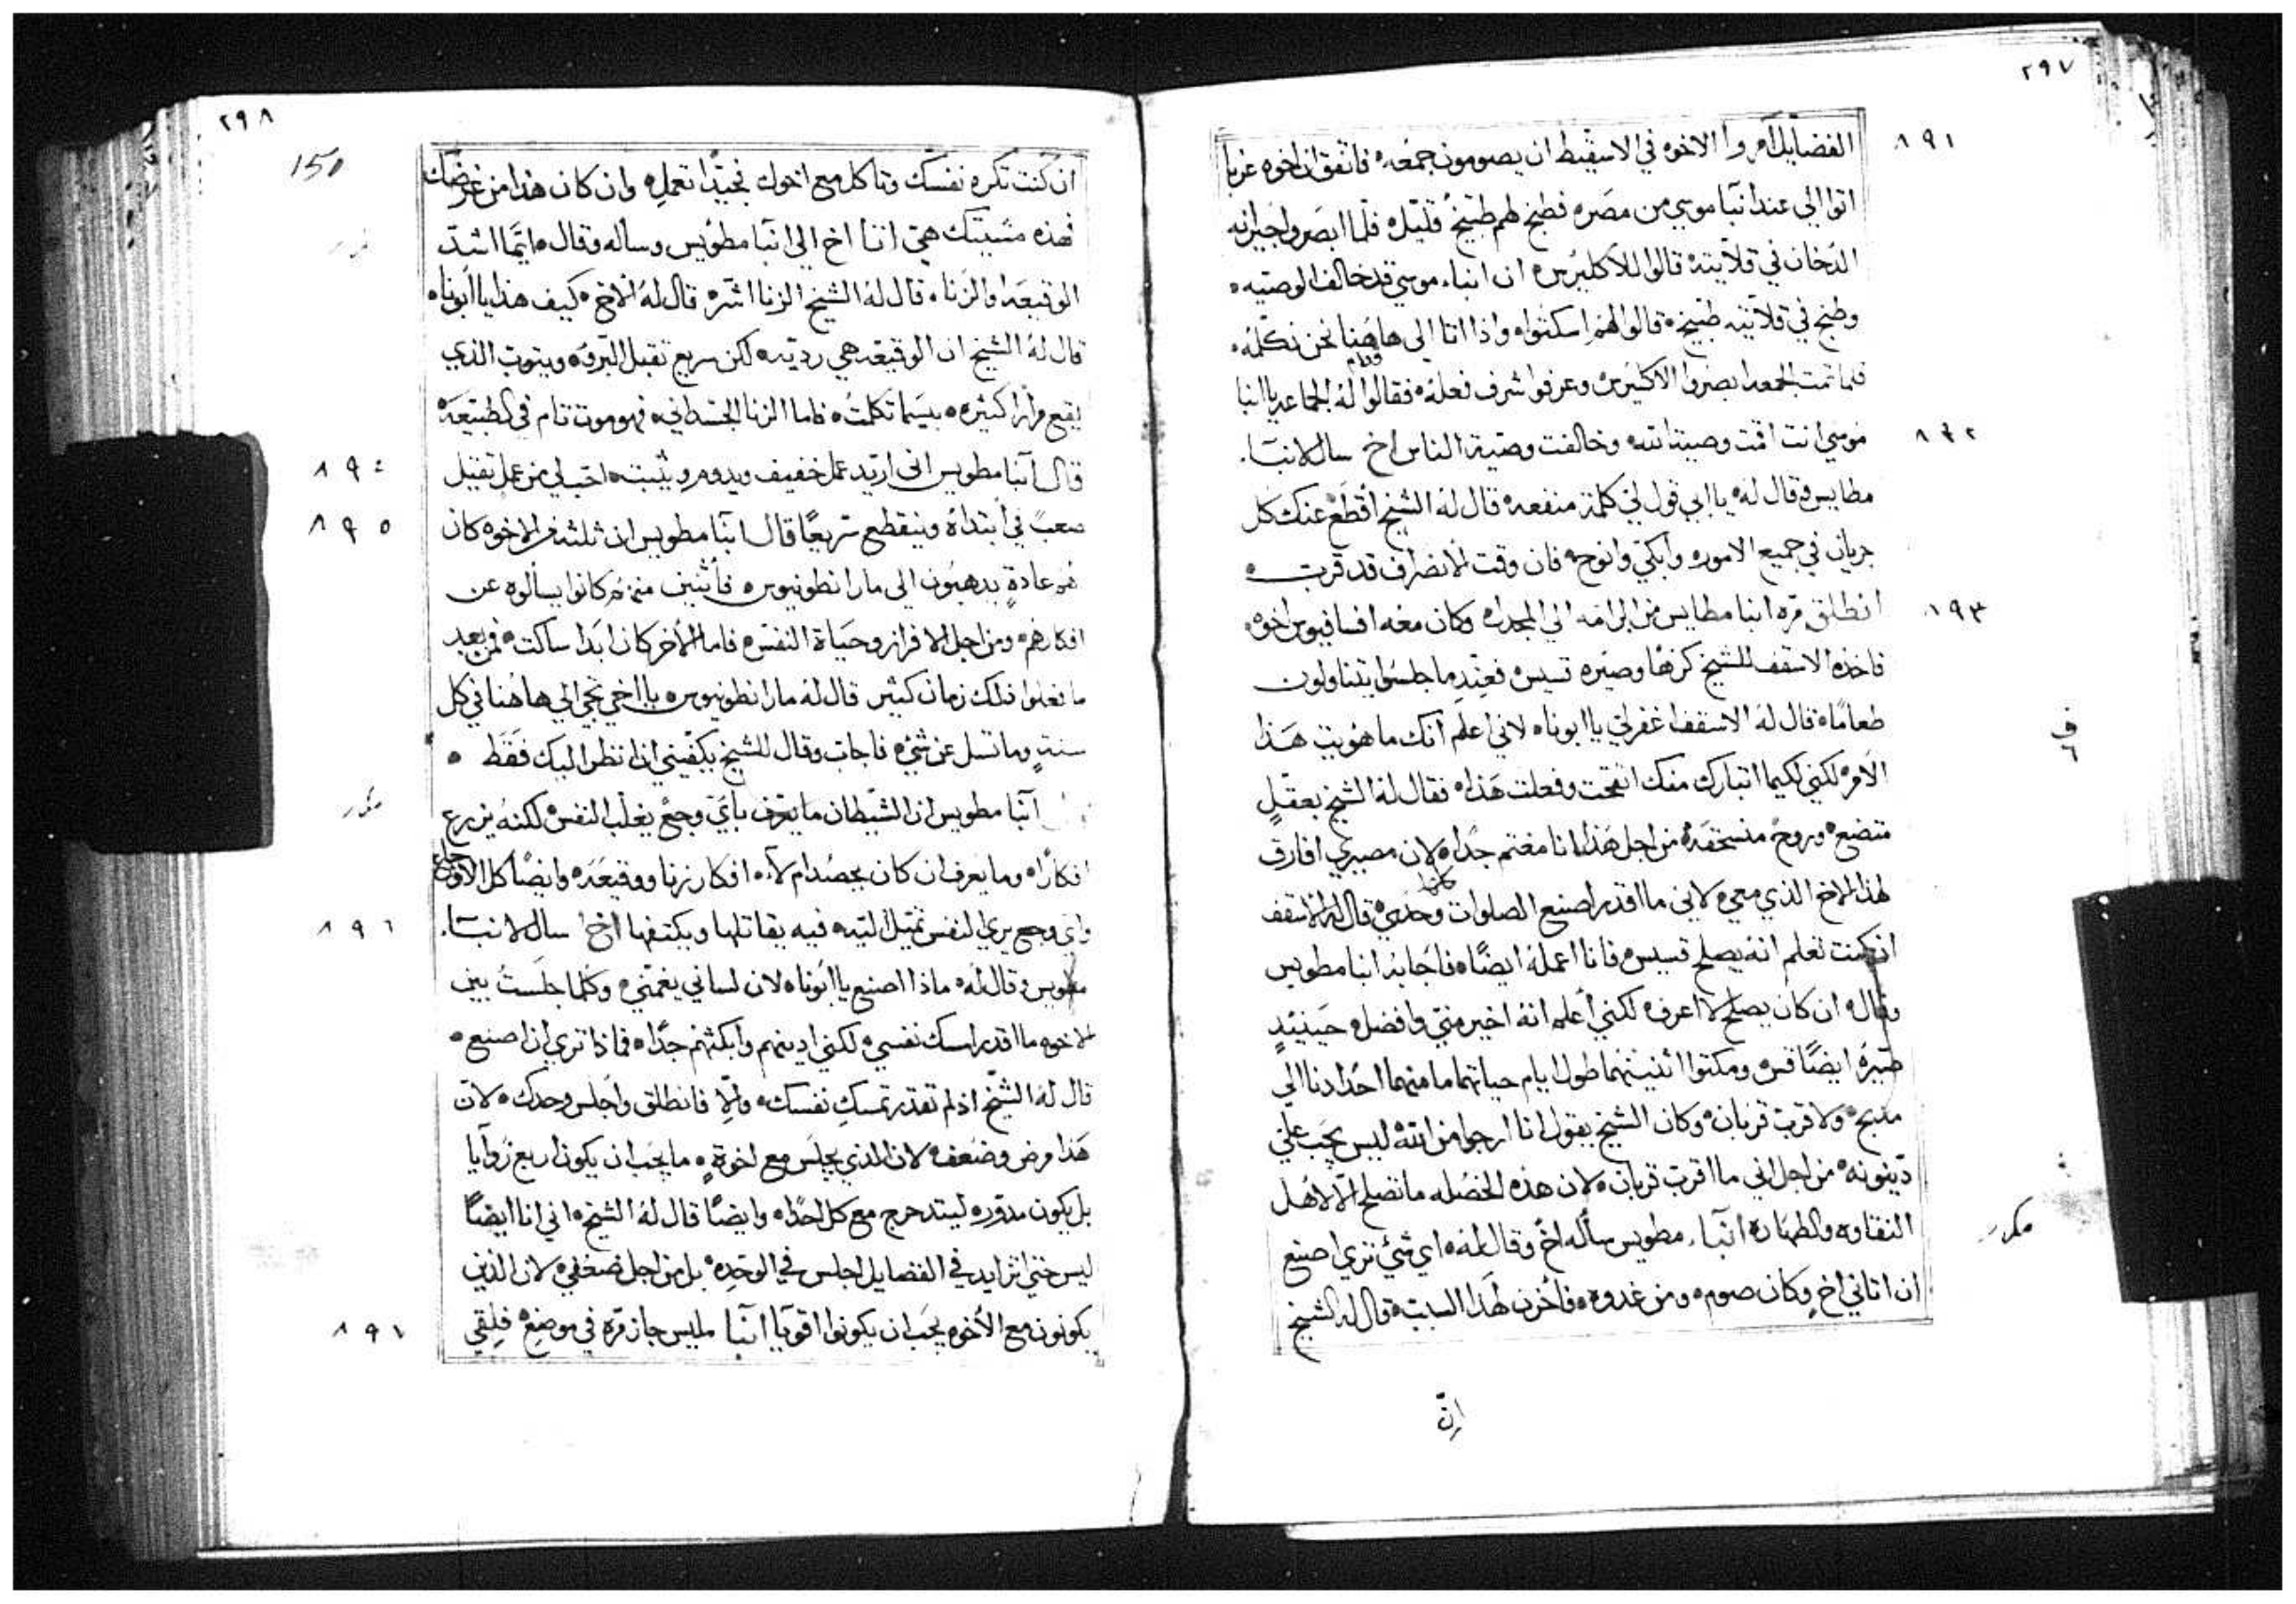 ٢٩٧
٨٩١
الفضايل امروا الاخوه في الاسقيط ان يصومون جمعه فاتفق ان اخوه غربا
اتوا الي عند انبا موسي من مصره فطبخ لهم طبيخ قليله فلما ابصروا جيرانه
الدخان في قلايته قالوا للاكليرس ان انباء موسي قد خالف الوصيه
وطبخ في قلايته طبيخ قالوا لهم اسكتوا واذا اتا الى هاهنا نحن نكلمه
فلما تمت الجمعه ابصروا الاكليرس وعرفوا شرف فعله فقالوا له قدام الجماعه يا انبا
٨٩٢
موسي انت اقمت وصية الله وخالفت وصية الناس اخ سال لانبا
مطايس وقال له يا ابي قول لي كلمة منفعه قال له الشيخ اقطع عنك كل
جريان في جميع الامور وابكي وانوح فان وقت الانصراف قد قرب
٨٩٣
انطلق مره انبا مطايس من الرامه الي المجدل وكان معه اخوه
فاخذه الاسقف للشيخ كرها وصيره قسيس فعند ما جلسوا يتناولون
طعاما قال له الاسقف اغفر لي يا ابوناه لاني اعلم انك ما هويت هذا
الامر لكني لكيما اتبارك منك اتقحت وفعلت هذا فقال له الشيخ بعقل
متضع وروح منسحقه من اجل هذا انا مغتم جدا لان مصيري افارق
لهذا الاخ الذي معي لاني ما اقدر اصنع الصلوات كلها وحدي قال له الاسقف
ان كنت تعلم انه يصلح قسيس فانا اعمله ايضا فاجابه انبا مطويس
وقال ان كان يصلح لا اعرف لكني اعلم انه اخير مني وافضل حينيد
صيره ايضا قس ومكثوا اثنينهما طول ايام حياتهما ما منهما احد ادنا الي
مدبح ولا قرب قربان وكان الشيخ يقول انا ارجوا من الله ليس يجب علي
دينونه من اجل اني ما اقرب قربان لان هذه الخصله ما تصلح الا لاهل
النقاوه والطهاره انبا مطويس ساله اخ وقال له اي شي تري اصنع
ان اتاني اخ وكان صوم ومن غدوه فاحزن لهذا السبب قال له الشيخ
ف
٦
مكرر
ان
٢٩٨
150
ان كنت تكره نفسك وتاكل مع اخوك فجيدا تعمل وان كان هذا من غرضك
فهذه مشيتك هي اتا اخ الي انبا مطويس وساله وقال ايما اشد
الوقيعه او الزنا قال له الشيخ الزنا اشر قال له الاخ كيف هذا يا ابوناه
قال له الشيخ ان الوقيعه هي رديه لكن سريع تقبل البرو ويتوب الذي
يقع مرارا كثيره بيسيما تكلمت فاما الزنا الجسداني فهو موت تام في الطبيعه
٨٩٤
قال انبا مطويس اني اريد عمل خفيف ويدوم ويثبت احب لي من عمل ثقيل
٨٩٥
صعب في ابتداه وينقطع سريعا قال انبا مطويس ان ثلثه من الاخوه كان
لهم عادة يدهبون الى مار انطونيوس فاثنين منهم كانوا يسالوه عن
افكارهم ومن اجل الافراز وحياة النفس فاما الاخر كان ابدا ساكت فمن بعد
ما فعلوا ذلك زمان كثير قال له مار انطونيوس يا اخي تجي الي هاهنا في كل
سنة وما تسل عن شي فاجاب وقال للشيخ يكفيني ان انظر اليك فقط
مكرر
انبا مطويس ان الشيطان ما يعرف باي وجع يغلب النفس لكنه يزرع
افكارا وما يعرف ان كان يحصد ام لا افكار زنا ووقيعه وايضا كل الاوجاع
٨٩٦
واي وجع يري النفس تميل اليه فيه يقاتلها ويكتفها اخ سال لانبا
مطويس وقال له ماذا اصنع يا ابوناه لان لساني يغمني وكلما جلست بين
الاخوه ما اقدر امسك نفسي لكني ادينهم وابكتهم جدا فماذا تري ان اصنع
قال له الشيخ اذ لم تقدر تمسك نفسك والا فانطلق واجلس وحدك لان
هذا مرض وضعف لان الذي يجلس مع اخوة ما يجب ان يكون اربع زوايا
بل يكون مدوره ليتدحرج مع كل احدا وايضا قال له الشيخ اني انا ايضا
ليس حتي اتزايد في الفضايل اجلس في الوحده بل من اجل ضعفي لان الذين
٨٩٧
يكونون مع الاخوه يجب ان يكونوا اقويا انبا مليس جاز مره في موضع فلقي